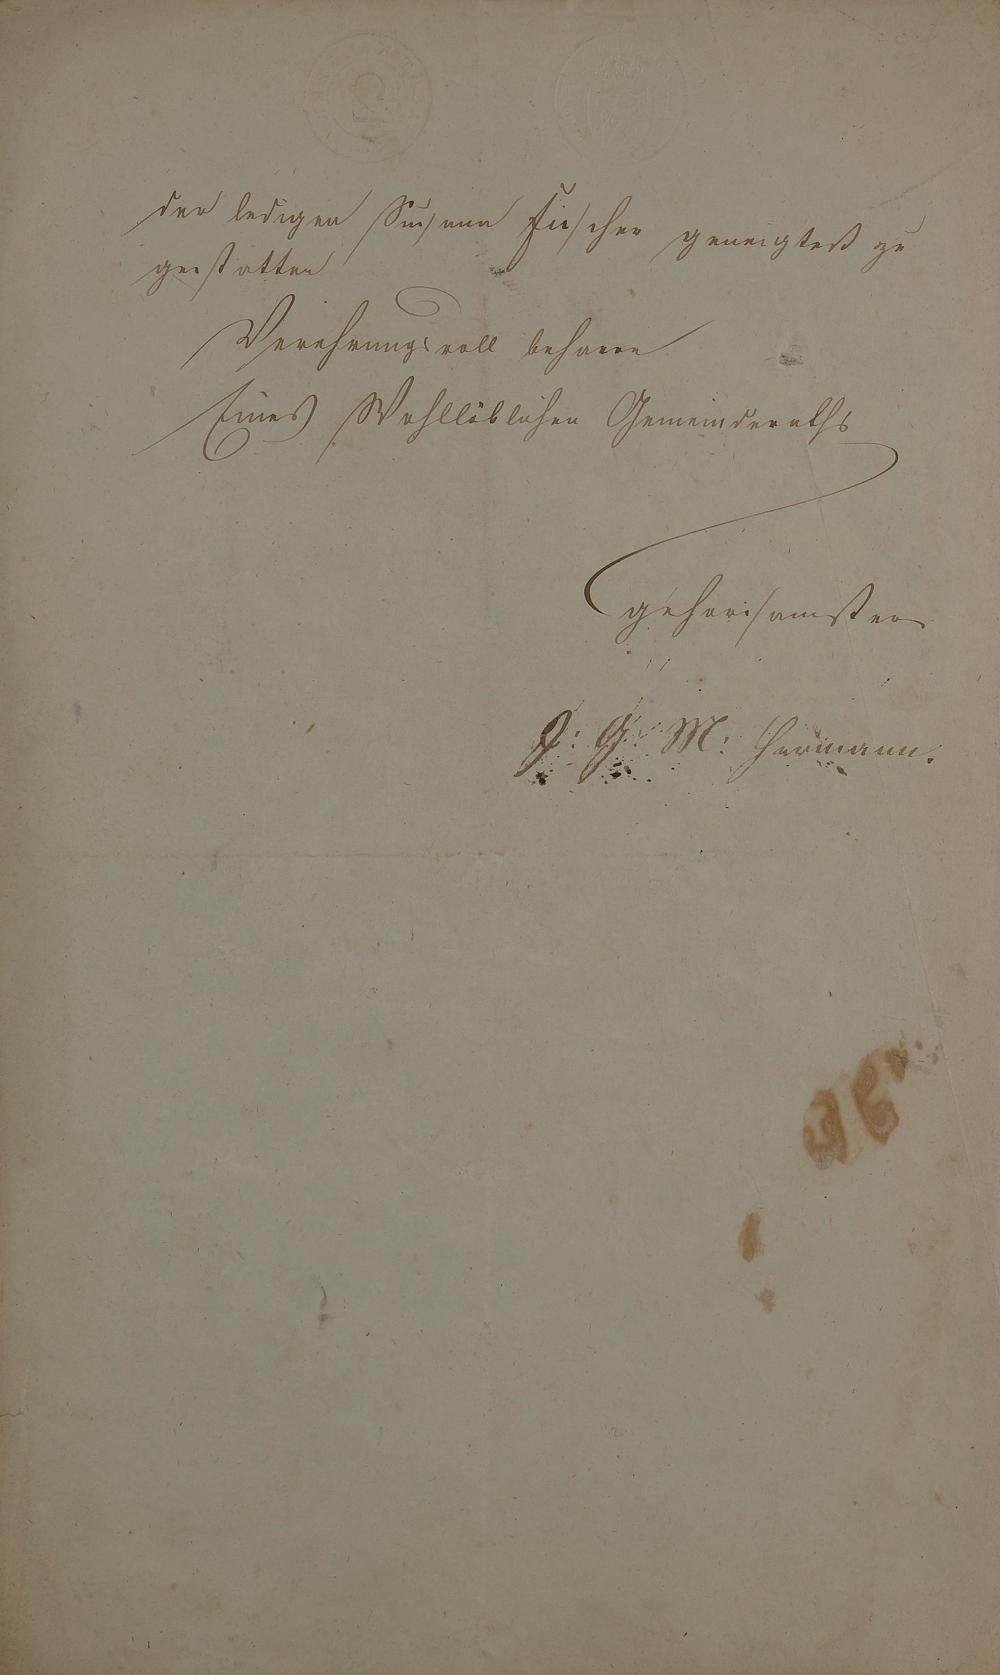 der ledigen Susann Fischer geneigtest zu
gestatten
Verehrungsvoll beharre
Eines Wohllöblichen Gemeinderaths
gehorsamster
J: G: M: Hermann.